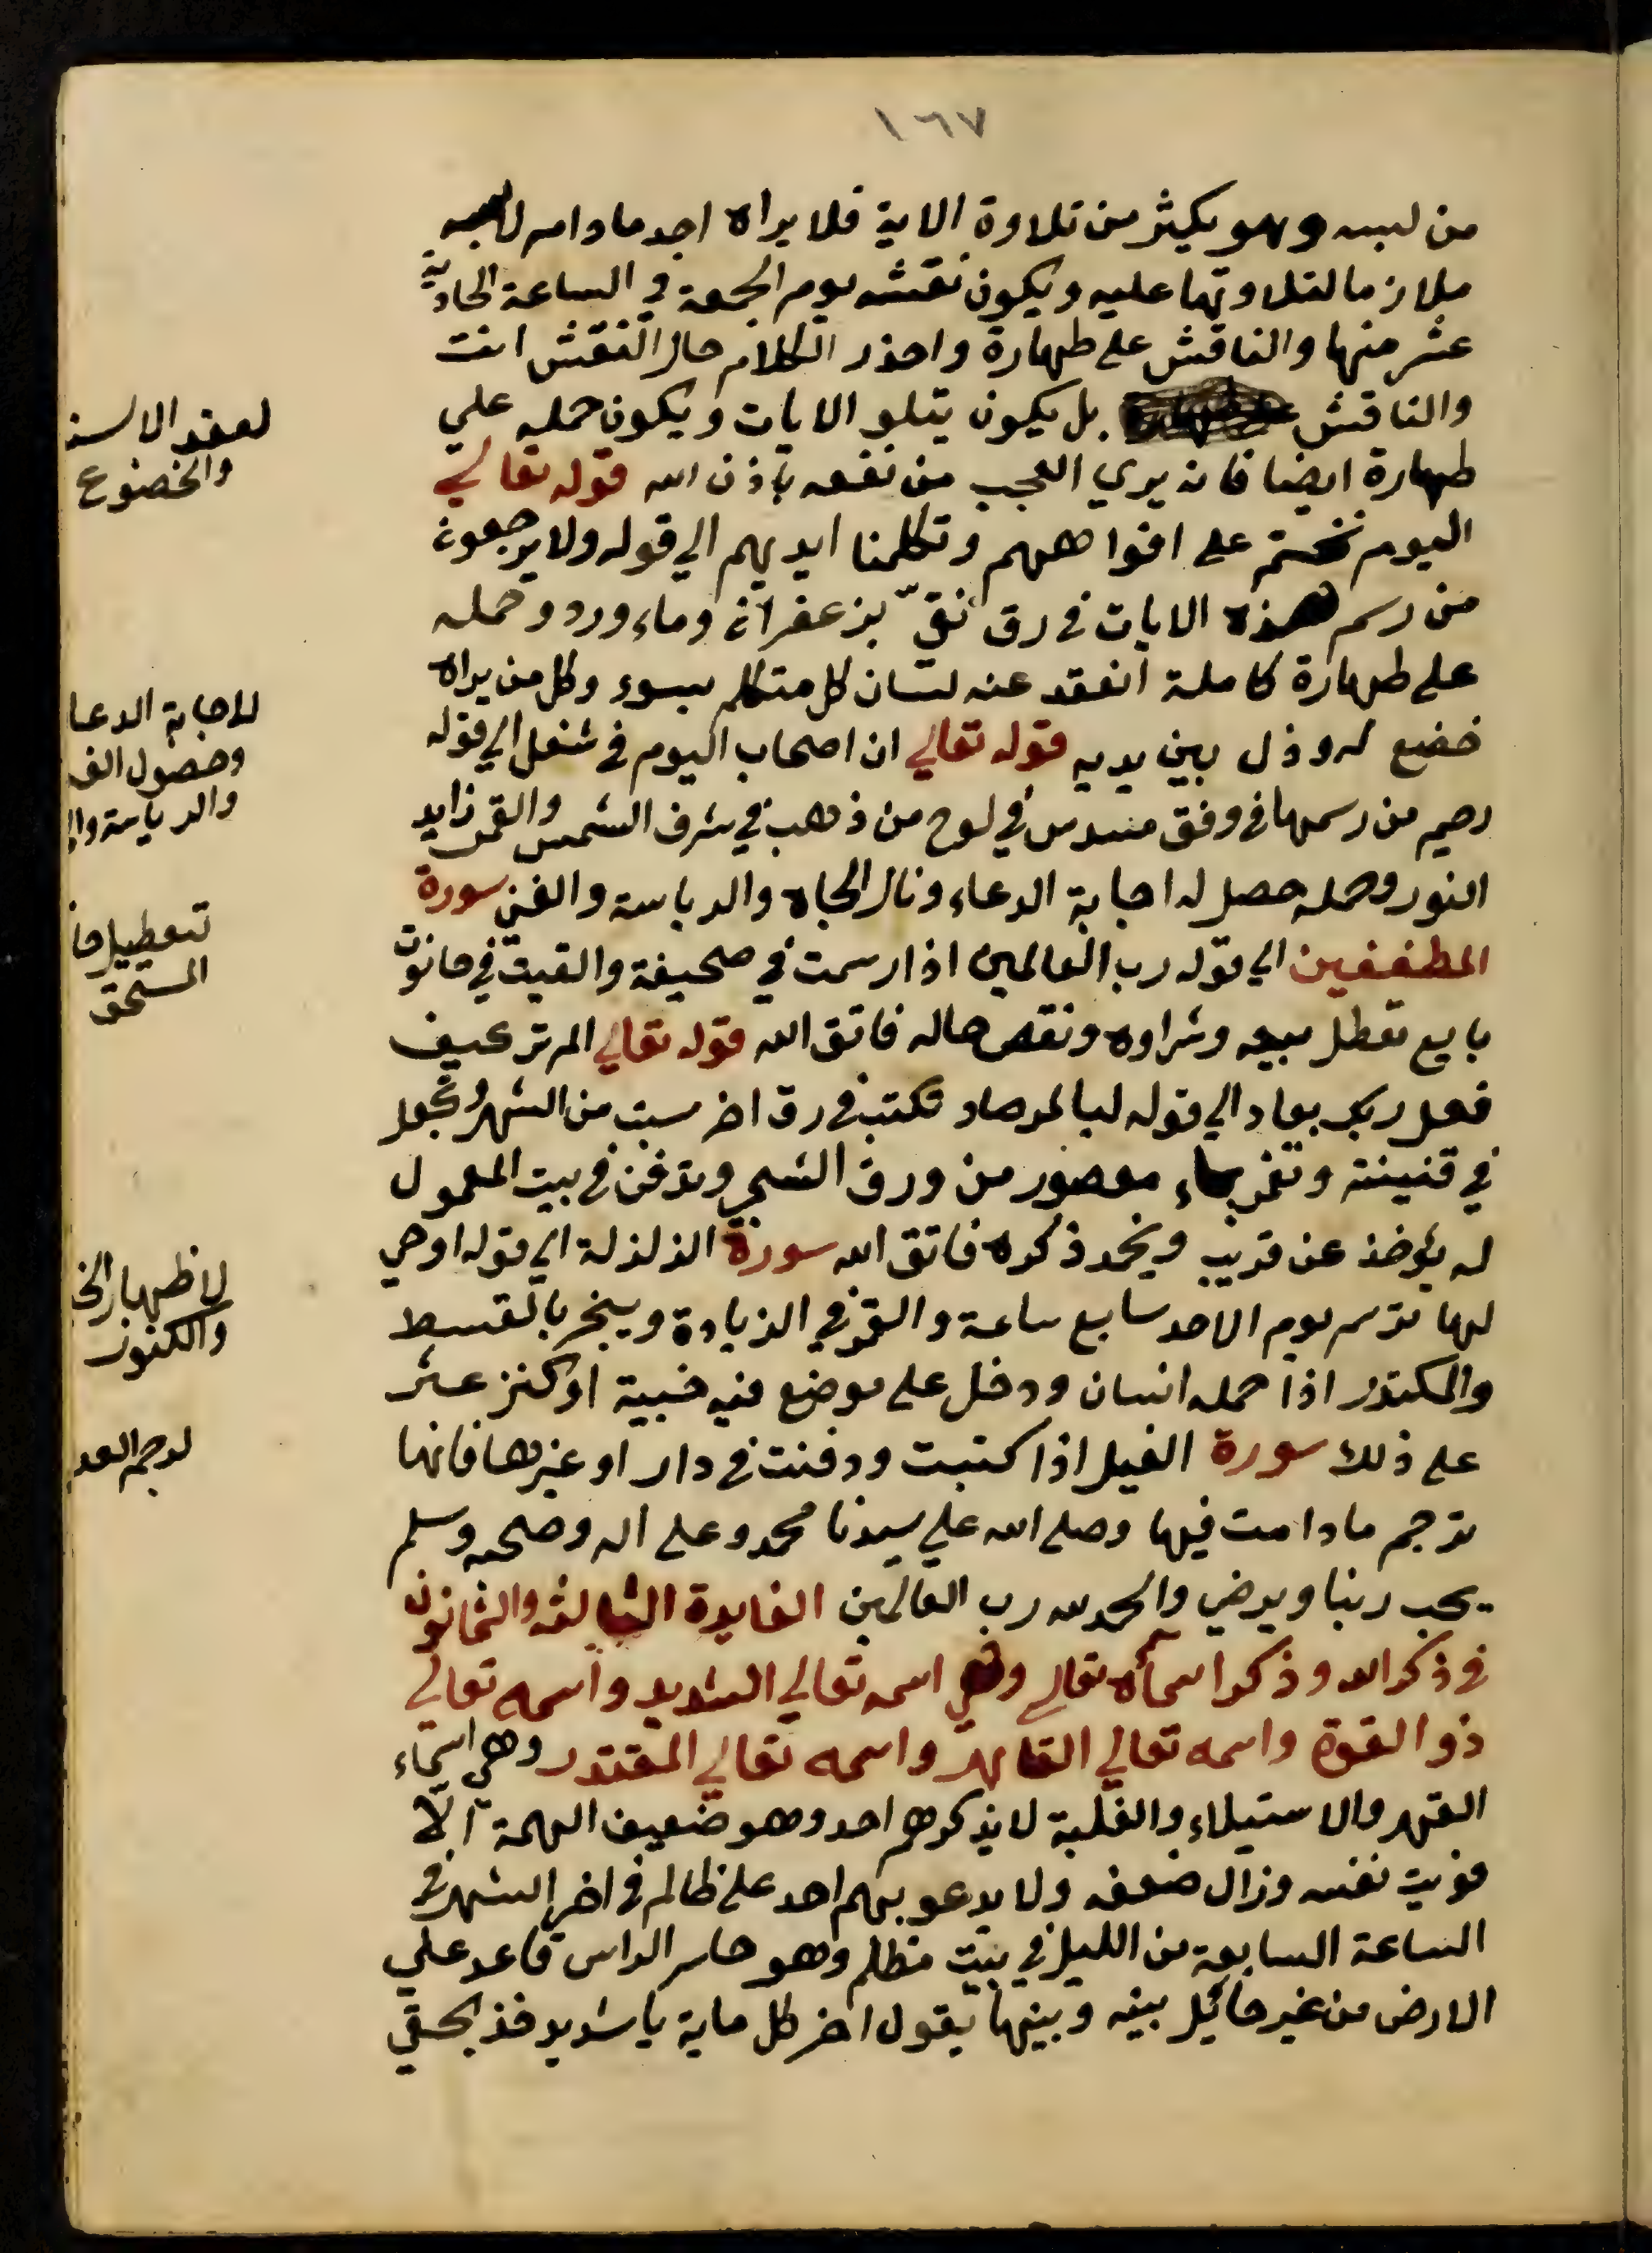 ١٦٧
من لبسه وهو يكيثر من تلاوة الاية فلا يراه احد مادام لابسه
ملازما لتلاوتها عليه ويكون نقشه يوم الجمعة في الساعة الحادية
عشر منها والناقش على طهارة واحذر الكلام حال النقش انت
والناقش بل يكون يتلو الايات ويكون حمله علي
طهارة ايضا فانه يري العجب من نفعه باذن الله قوله تعالي
اليوم نختم على افواههم وتكلمنا ايديهم الي قوله ولا يرجعون
من رسم هذه الايات في رق نقيّ بزعفران وماء ورد وحمله
على طهارة كاملة انعقد عنه لسان كل متكلم بسوء وكل من يراه
خضع له وذل بين يديه قوله تعالي ان اصحاب اليوم في شغل الي قوله
رحيم من رسمها في وفق مسدس في لوح من ذهب في شرف الشمس والقمر زايد
النور وحمله حصل له اجابة الدعاء ونال الجاه والرياسة والغني سورة
المطففين الي قوله رب العالمين اذا رسمت في صحيفة والقيت في حانوت
بايع تعطل بيعه وشراوه ونقص حاله فاتق الله قوله تعالي الم تر كيف
فعل ربك بعاد الي قوله لبالمرصاد تكتب في رق اخر سبت من الشهر وتجعل
في قنينة وتغمر بماء معصور من ورق الشجر وتدفن في بيت المعمول
له يؤخذ عن قريب ويخمد ذكره فاتق الله سورة الزلزلة الي قوله اوحي
لها ترسم يوم الاحد سابع ساعة والقمر في الزيادة ويبخر بالقسط
والكندر اذا حمله انسان ودخل على موضع فيه خبية او كنز عثر
على ذلك سورة الفيل اذا كتبت ودفنت في دار او غيرها فانها
ترجم مادامت فيها وصلى الله علي سيدنا محمد وعلى اله وصحبه وسلم
يحب ربنا ويرضي والحمد لله رب العالمين الفايدة الثالثة والثمانون
في ذكر الله وذكر اسماه تعالي وهي اسمه تعالي الشديد واسمه تعالي
ذو القوة واسمه تعالي القاهر واسمه تعالي المقتدر وهي اسماء
القهر والاستيلاء والغلبة لا يذكرهم احد وهو ضعيف الهمة الّا
قويت نفسه وزال ضعفه ولا يدعو بهم احد على ظالم في اخر الشهر في
الساعة السابعة من الليل في بيت مظلم وهو حاسر الراس قاعد علي
الارض من غير حائيل بينه وبينها يقول اخر كل ماية يا شديد خذ بحقي
لعقد الالسنة
والخضوع
لاجابة الدعا
وحصول الغ
والرياسة وال
تعطيل حا
المستحق
لاظهار الخ
والكنوز
لرجم العد